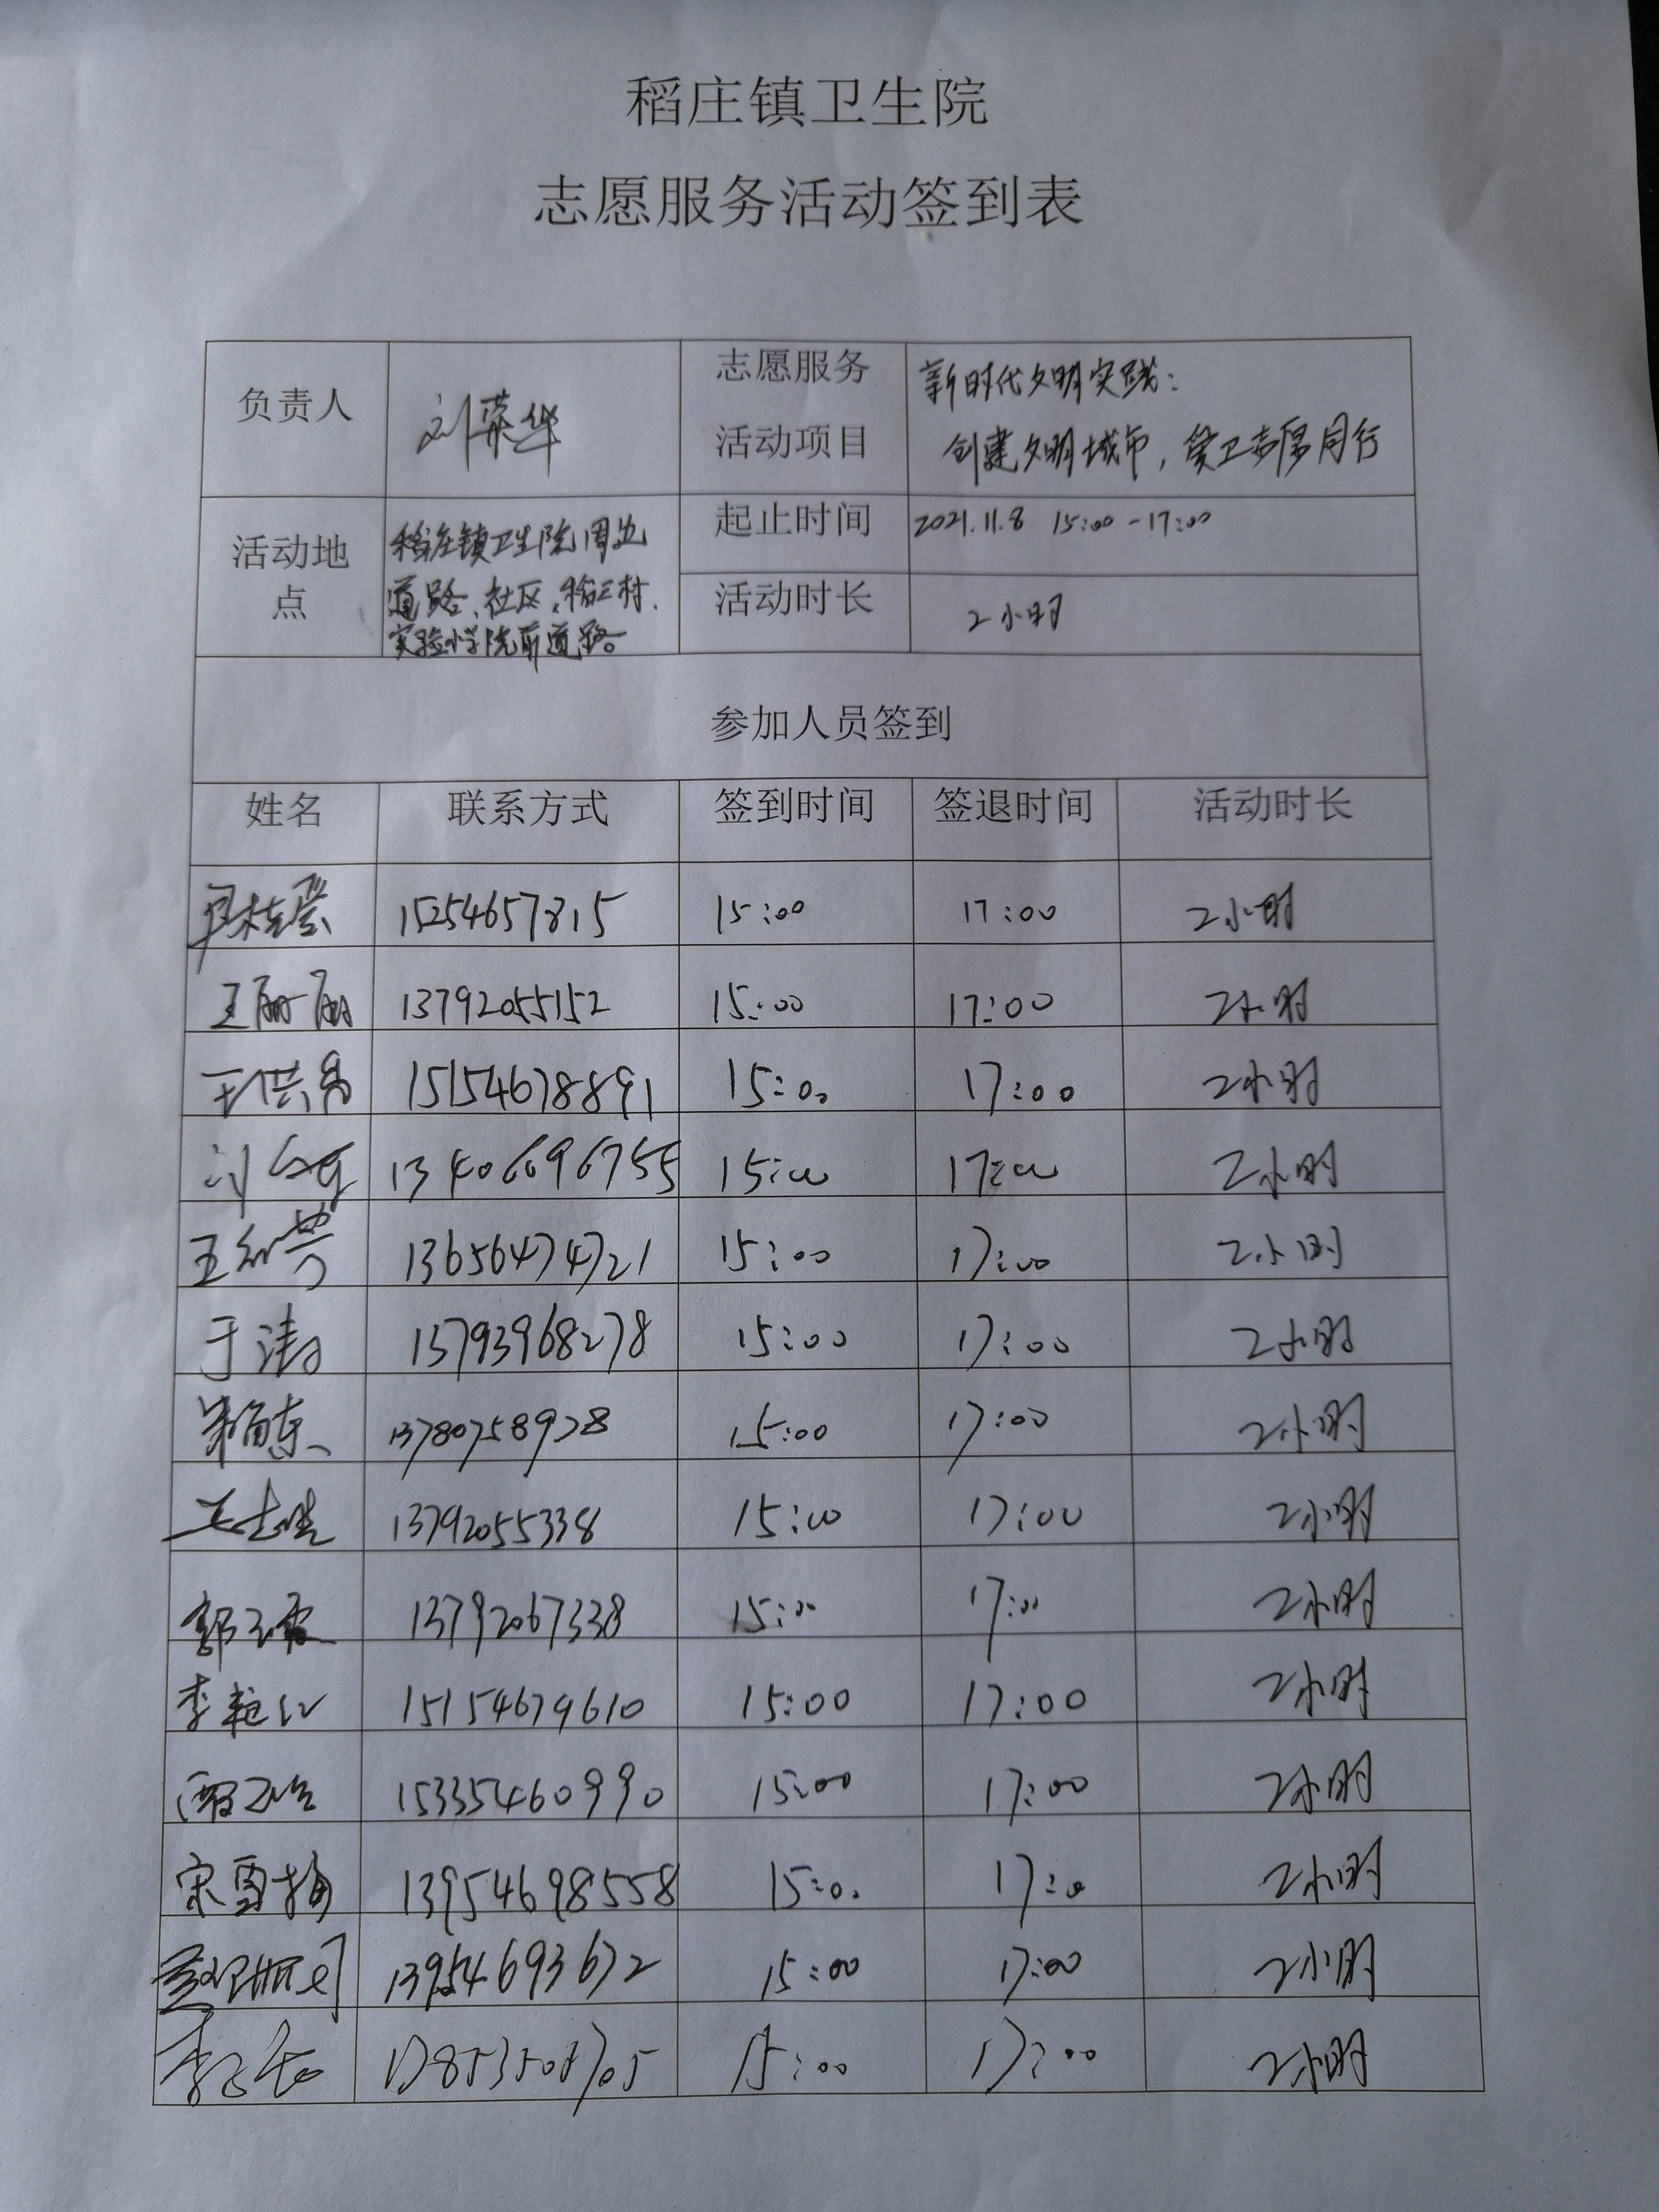 稻庄镇卫生院
志愿服务活动签到表
负责人 刘荣华 志愿服务活动项目 新时代文明实践:
创建文明城市,爱卫志愿同行
活动地点 稻庄镇卫生院周边
道路、社区、稻三村、
实验小学院前道路
起止时间 2021.11.8 15:00-17:00
活动时长 2小时
参加人员签到
姓名 联系方式 签到时间 签退时间 活动时长
15254657815 15:00 17:00 2小时
王丽丽 13792055152 15:00 17:00 2小时
王洪昌 15154678891 15:00 17:00 2小时
13406696755 15:00 17:00 2小时
13656474721 15:00 17:00 2小时
于涛 13793968278 15:00 17:00 2小时
13780758928 15:00 17:00 2小时
13792055338 15:00 17:00 2小时
13792067338 15:00 17:00 2小时
李艳红 15154679610 15:00 17:00 2小时
15335460990 15:00 17:00 2小时
宋雪梅 13954698558 15:00 17:00 2小时
13954693672 15:00 17:00 2小时
15:00 17:00 2小时